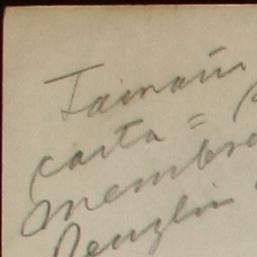 Tamaño
carta = (
membre
Renglon